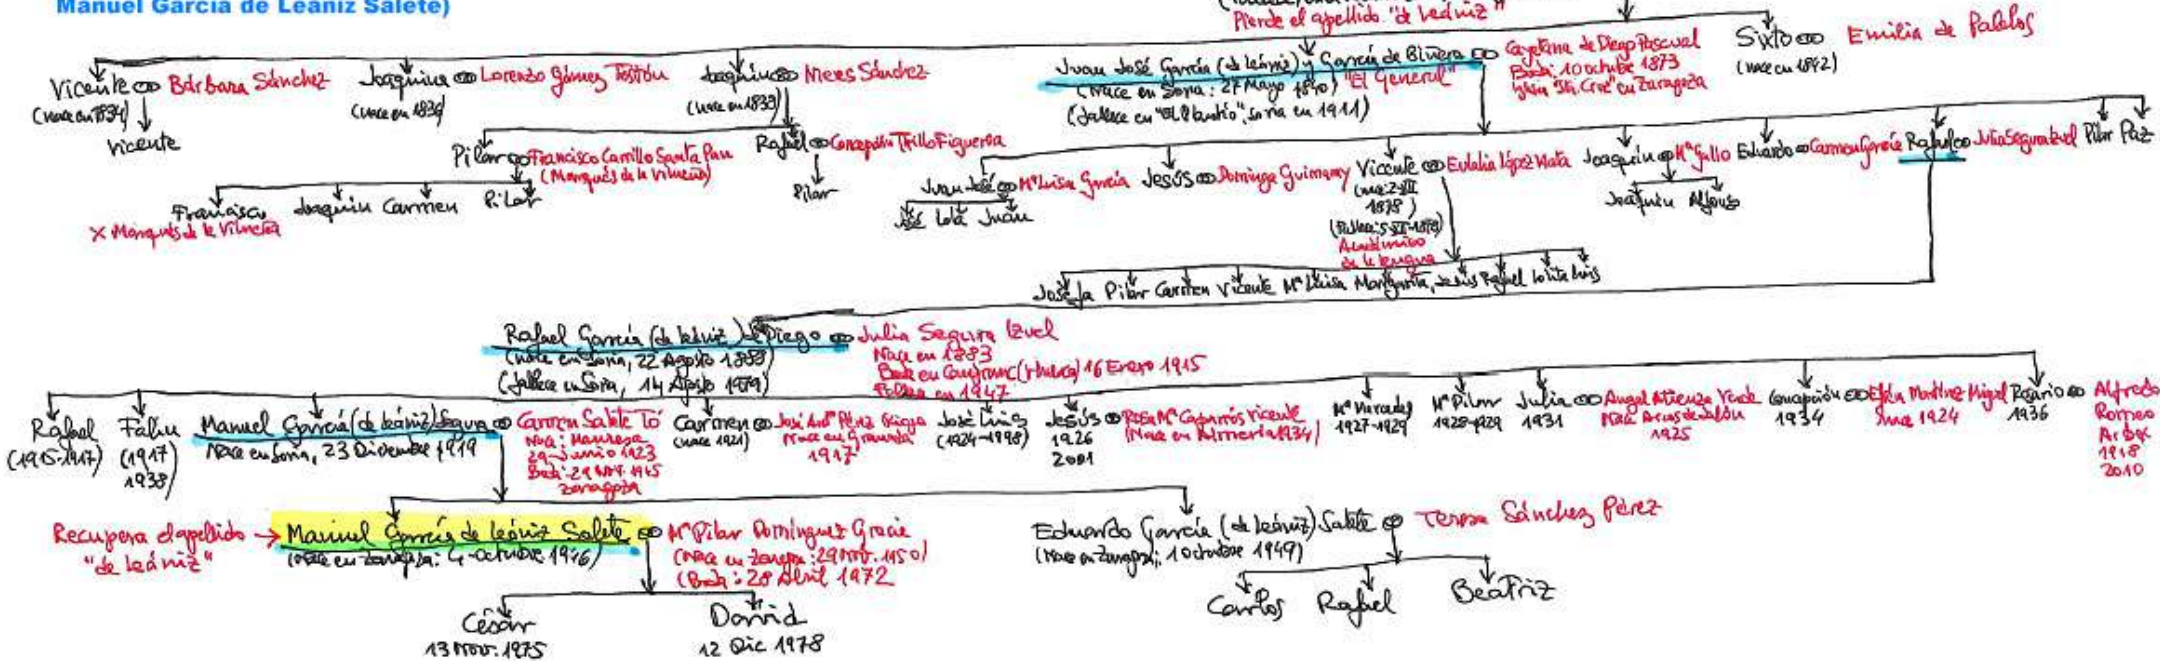 Manuel García de Leániz Salete)
Pierde el apellido "de Leániz"
Vicente ∞ Bárbara Sánchez
(nace en 1834)
Vicente
Joaquina ∞ Lorenzo Gómez Tostón
Joaquín ∞ Nieves Sánchez
(nace en 1833)
Juan José García (de Leániz) y García de Bivera ∞ Cayetana de Diego Pascual
(nace en Soria: 27 Mayo 1840) "El General"
(fallece en , Soria en 1911)
Boda: 10 octubre 1873
"Sta. Cruz" en Zaragoza
Sixto ∞ Emilia de
Pilar ∞ Francisco Carrillo Santa Pau
(Marqués de la Vilueña)
Rafael ∞ Concepción Trillo Figueroa
Pilar
Francisco Joaquín Carmen Pilar
X Marqués de la Vilueña
Juan José ∞ Mª Luisa García
José Lola Juan
Jesús ∞ Dominga
Vicente ∞ Eulalia López Mata
1878)
Académico
de la lengua
Joaquín ∞ Mª Gallo
Joaquín Alfonso
Eduardo ∞ Carmen García
Rafael ∞ Julia Segura Izuel
Pilar Paz
Josefa Pilar Carmen Vicente Mª Luisa Margarita, Jesús Rafael Lolita Luis
Rafael García (de Leániz) de Diego ∞ Julia Segura Izuel
(nace en Soria, 22 Agosto 1883)
(fallece en Soria, 14 Agosto 1979)
Nace en 1883
Boda en Canfranc (Huesca) 16 Enero 1915
Fallece en 1947
Rafael
(1915-1917)
(1917)
1938)
Manuel García (de Leániz) Segura ∞ Carmen Salete Tó
Nace en Soria, 23 Diciembre 1919
Nace: Manresa
29-Junio 1923
Zaragoza
Carmen ∞ José
(nace 1921)
Nace en Granada
1917
José Luis
(1924-1998)
Jesús ∞ Rosa Mª Caparrós Vicente
1926
2001
(Nace en Almería 1934)
Mª Mercedes
1927-1929
Mª Pilar
1928-1929
Julia ∞ Angel Atienza
1931
Nace Arcos de Jalón
1925
Concepción ∞ Martínez Miguel
1934
nace 1924
Rosario ∞ Alfredo
1936
Romeo
1918
2010
Recupera el apellido → Manuel García de Leániz Salete ∞ Mª Pilar Domínguez Gracia
"de Leániz"
(nace en Zaragoza: 4-octubre 1946)
(nace en Zaragoza: 29 Nov. 1950)
(Boda: 28 Abril 1972
César
13 Nov. 1975
David
12 Dic 1978
Eduardo García (de Leániz) Salete ∞ Teresa Sánchez Pérez
(Nace en Zaragoza: 10 octubre 1949)
Carlos Rafael Beatriz